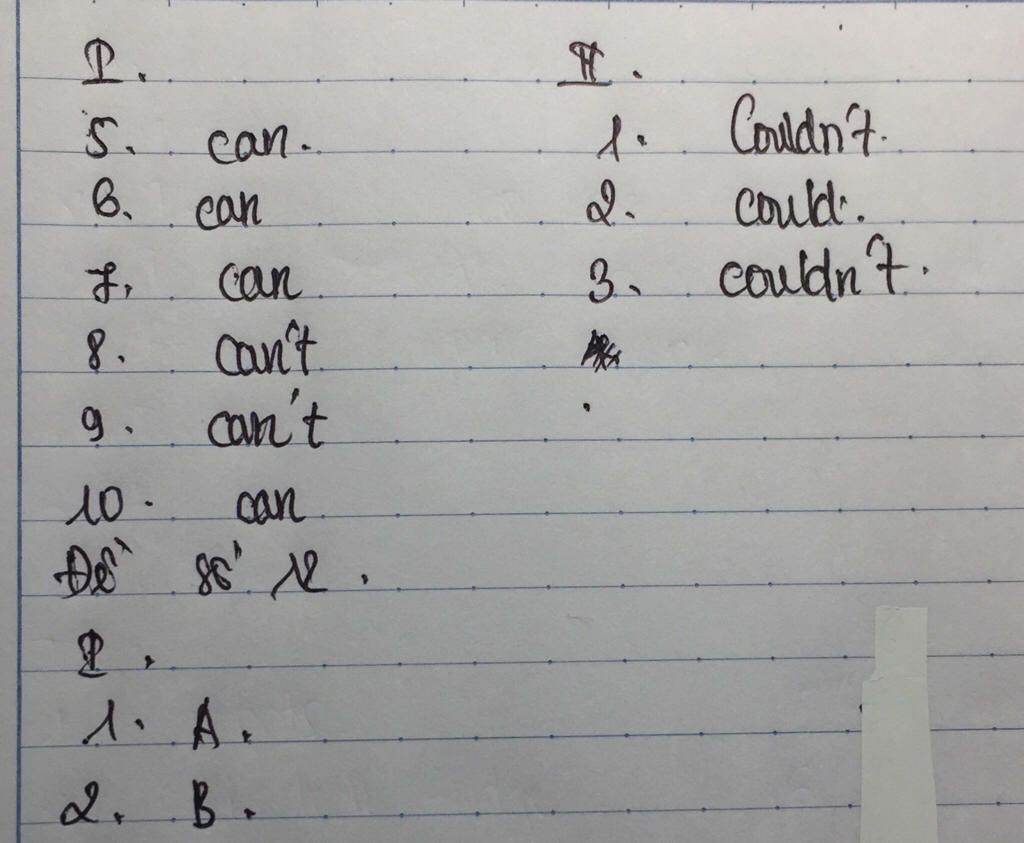 I.
5. can.
6. can
7. can
8. can't
9. can't
10. can
II.
1. Couldn't.
2. could.
3. couldn't.
Đề số 12.
I.
1. A.
2. B.